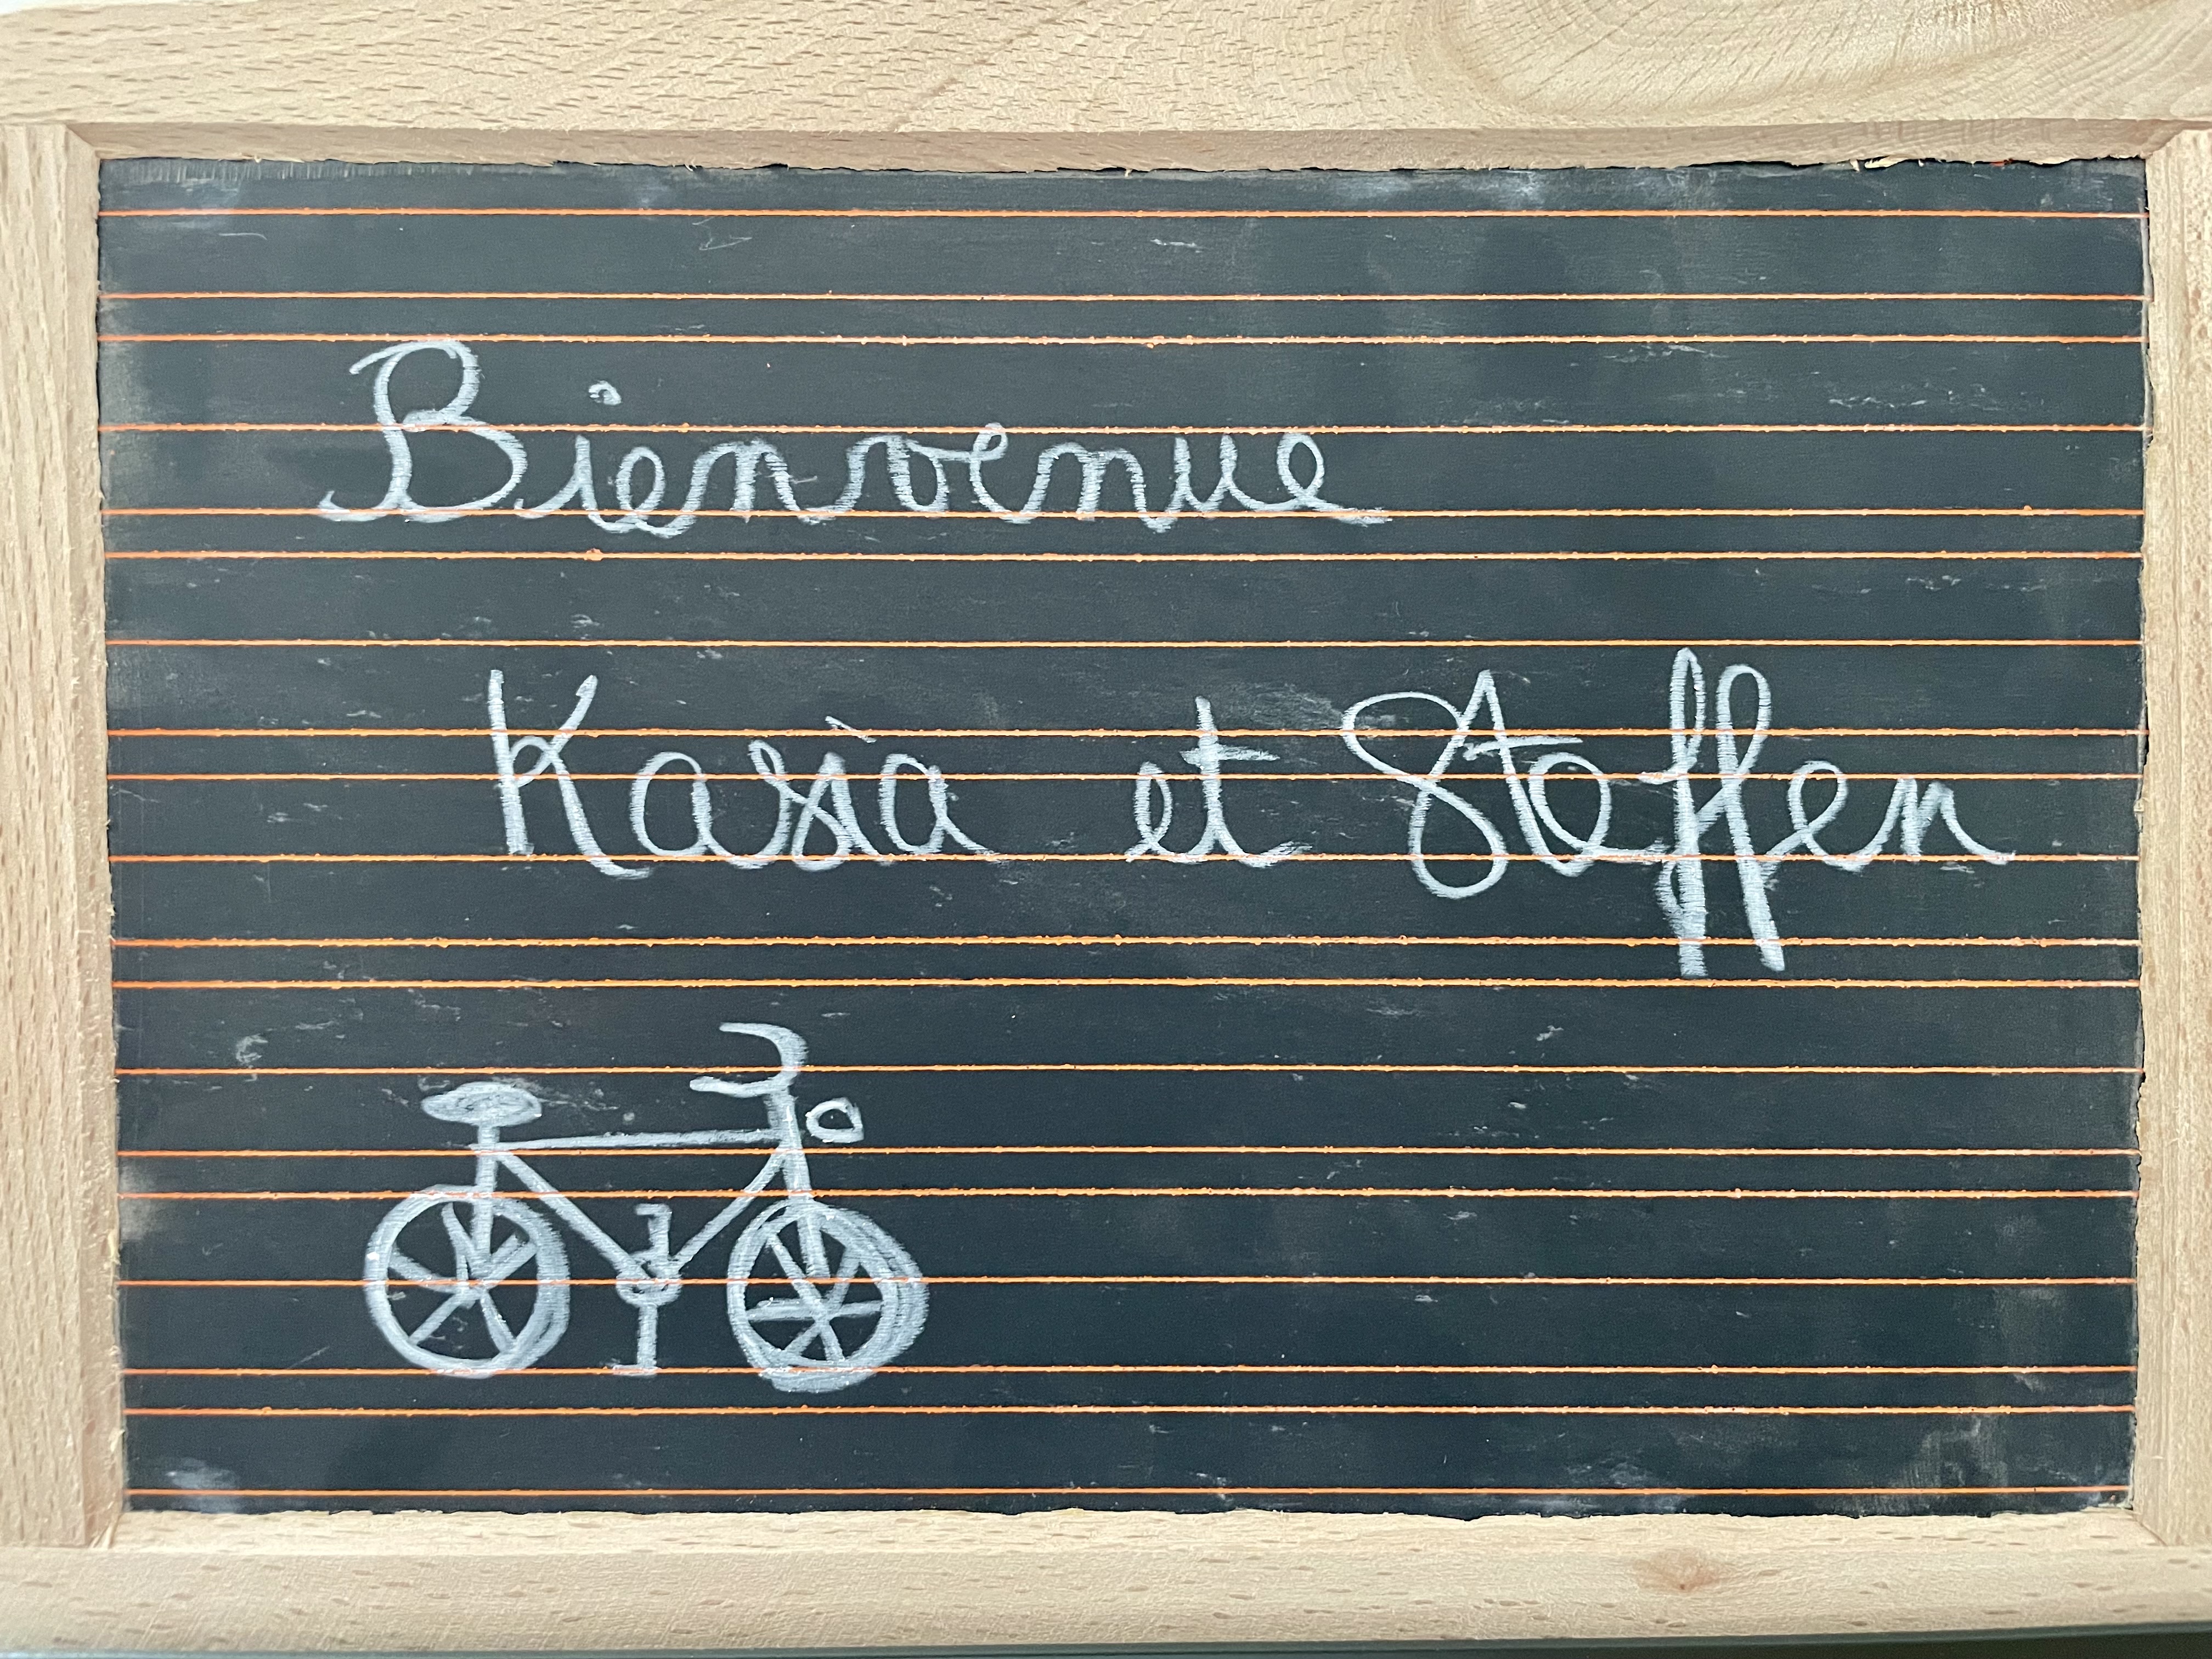 Bienvenue
Kasia et Steffen